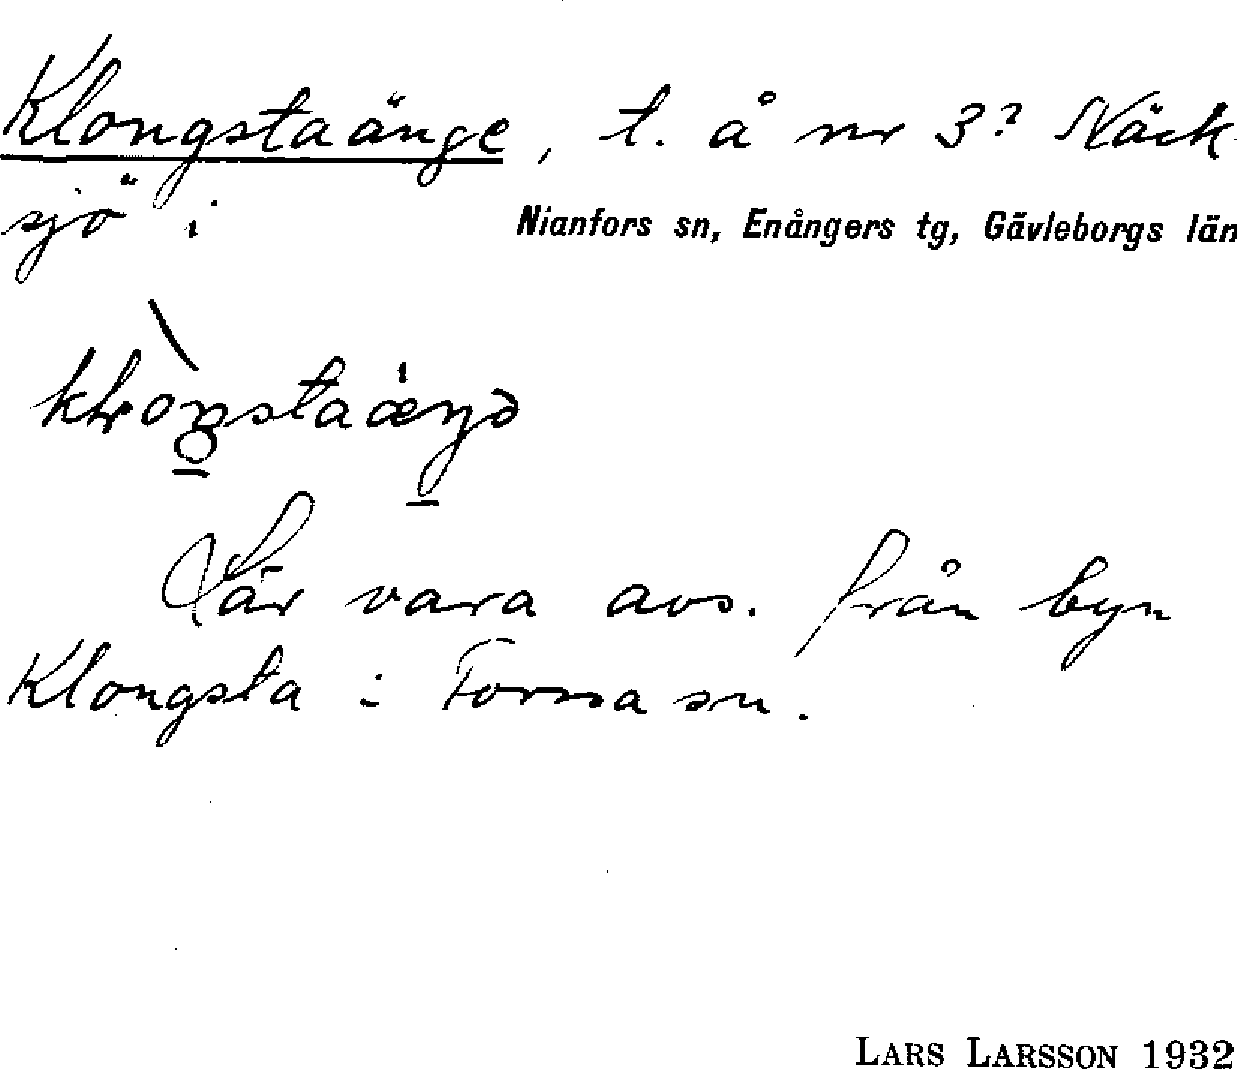 Klongstaänge, t. å nr 3? Näck-
sjö i
Nianfors sn, Enångers tg, Gävleborgs län
Lär vara avs. från byn
Klongsta i Forssa sn.
LARS LARSSON 1932